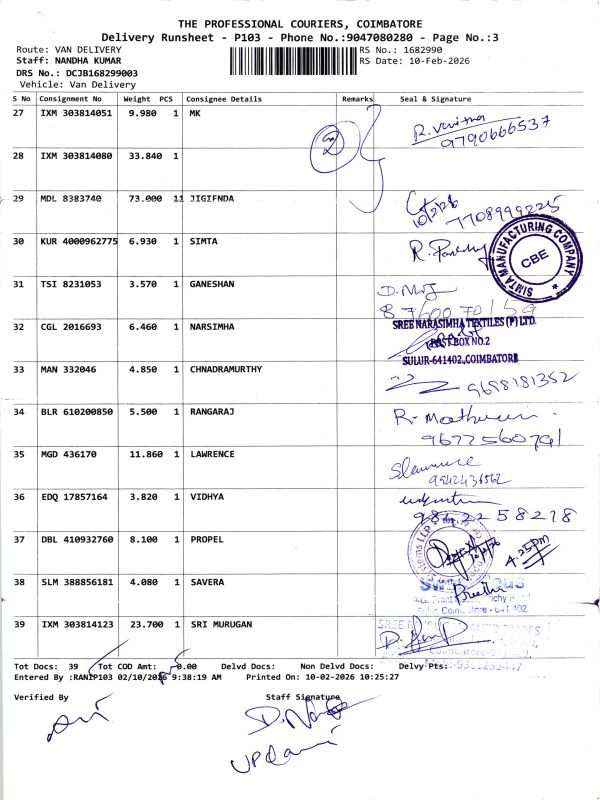 THE PROFESSIONAL COURIERS, COIMBATORE
Delivery Runsheet - P103 - Phone No.:9047080280 - Page No.:3
Route: VAN DELIVERY
RS No.: 1682990
Staff: NANDHA KUMAR
RS Date: 10-Feb-2026
DRS No.: DCJB168299003
Vehicle: Van Delivery
S No Consignment No Weight PCS Consignee Details Remarks Seal & Signature
27 IXM 303814051 9.980 1 MK
R. Vanitha
9790666537
2
28 IXM 303814080 33.840 1
29 MDL 8383740 73.000 11 JIGIFNDA
10/2/26 7708999225
30 KUR 4000962775 6.930 1 SIMTA
SIMTA MANUFACTURING COMPANY
CBE
31 TSI 8231053 3.570 1 GANESHAN
8760070159
32 CGL 2016693 6.460 1 NARSIMHA
SREE NARASIMHA TEXTILES (P) LTD.
POST BOX NO.2
SULUR-641402, COIMBATORE
33 MAN 332046 4.850 1 CHNADRAMURTHY
9698181352
34 BLR 610200850 5.500 1 RANGARAJ
9677560791
35 MGD 436170 11.860 1 LAWRENCE
Slawrence
9942436562
36 EDQ 17857164 3.820 1 VIDHYA
9862258278
37 DBL 410932760 8.100 1 PROPEL
4.25pm
38 SLM 388856181 4.080 1 SAVERA
Preetha
39 IXM 303814123 23.700 1 SRI MURUGAN
SREE
Tot Docs: 39 Tot COD Amt: 0.00 Delvd Docs: Non Delvd Docs: Delvy Pts:
Entered By :RANIP103 02/10/2026 9:38:19 AM Printed On: 10-02-2026 10:25:27
Verified By Staff Signature